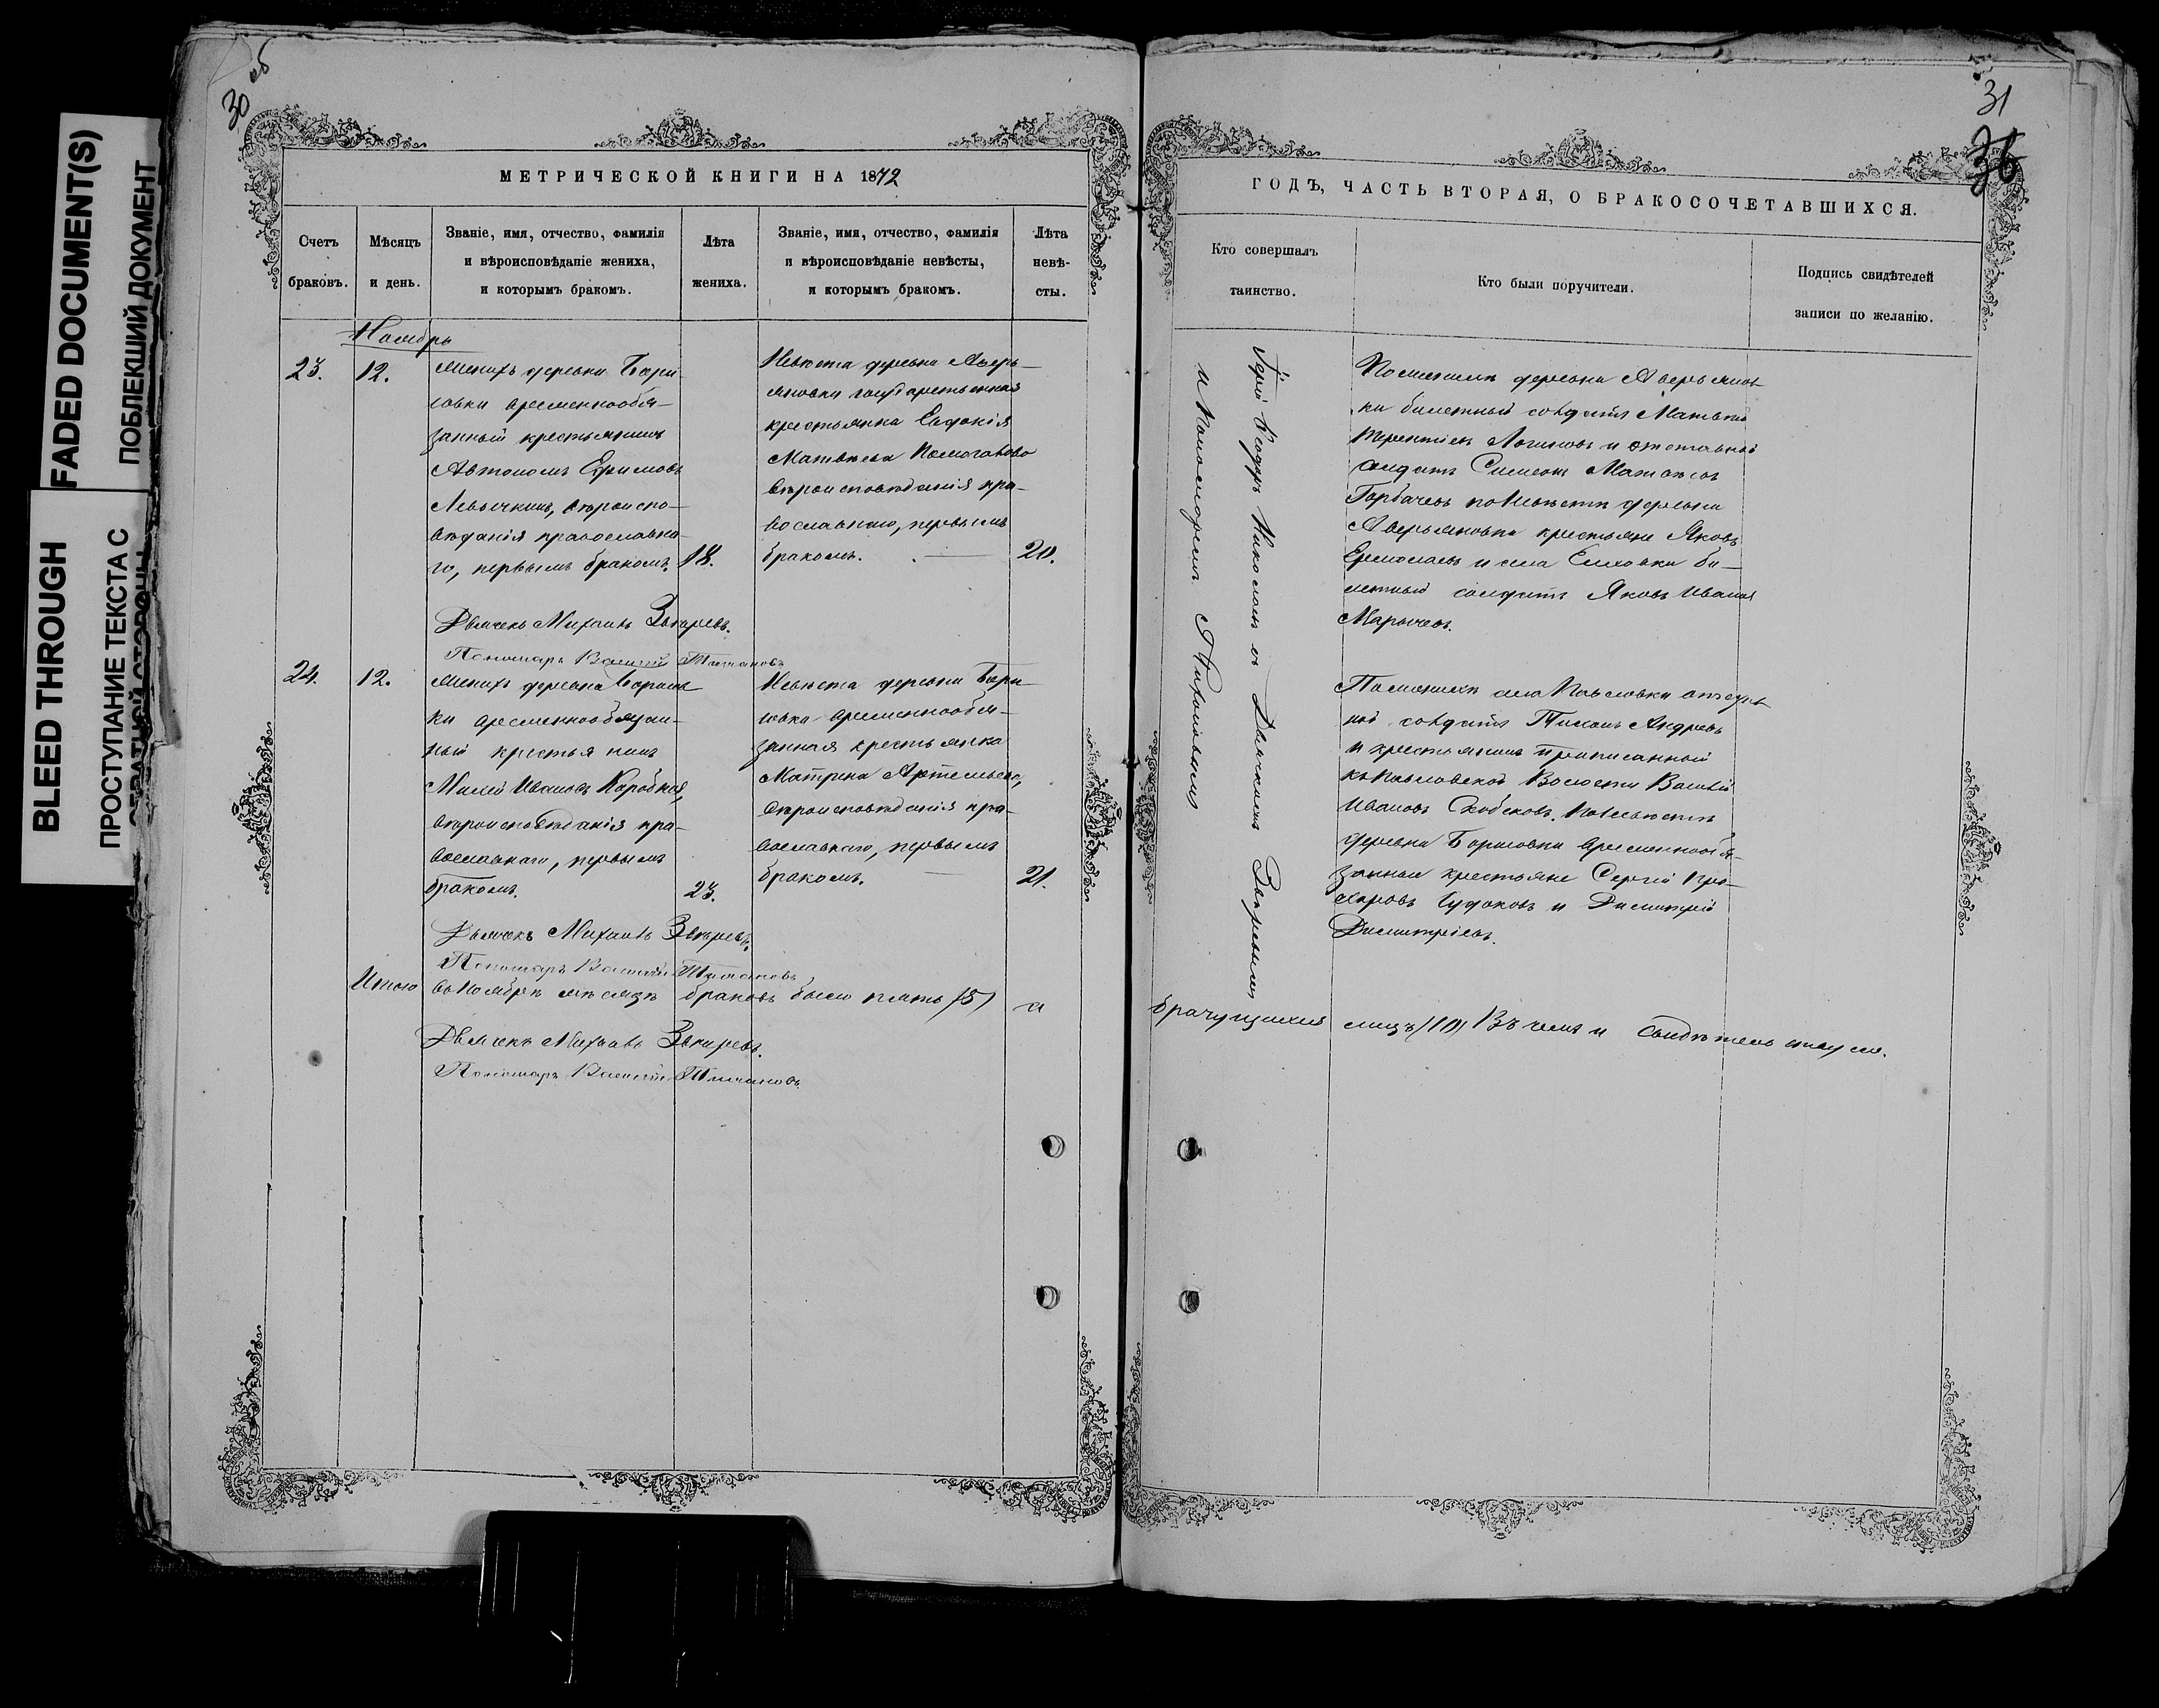 FADED DOCUMENT(S)
ПОБЛЕКШИЙ ДОКУМЕНТ
BLEED THROUGH
ПРОСТУПАНИЕ ТЕКСТА С
ОБРАТНОЙ СТОРОНЫ
30 об
МЕТРИЧЕСКОЙ КНИГИ НА 1872
Счетъ браковъ.
Мѣсяцъ и день.
Званіе, имя, отчество, фамилія
и вѣроисповѣданіе жениха,
и которымъ бракомъ.
Лѣта жениха.
Званіе, имя, отчество, фамилія
и вѣроисповѣданіе невѣсты,
и которымъ бракомъ.
Лѣта невѣ-
сты.
Ноябрь
23.
12.
Женихъ деревни Бори-
совки временнообя-
занный крестьянинъ
Автономъ Ефимовъ
вѣроиспо-
вѣданія православна-
го, первымъ бракомъ.
18.
Невѣста деревни Аверь-
яновки государственная
крестьянка Евдокія
Матвѣева
вѣроисповѣданія пра-
вославнаго, первымъ
бракомъ.
20.
Дьячекъ Михаилъ Звѣревъ.
Пономарь Василій
24.
12.
Женихъ деревни Борисов-
ки временнообязан-
ный крестьянинъ
Иванов
вѣроисповѣданія пра-
вославнаго, первымъ
бракомъ.
23.
Невѣста деревни Бори-
совки временнообя-
занная крестьянка
Матрена Артемьева,
вѣроисповѣданія пра-
вославнаго, первымъ
бракомъ.
21.
Дьячекъ Михаилъ Звѣревъ.
Пономарь Василій
Итого въ Ноябрѣ мѣсяцѣ браковъ было пять (5) а
Дьячекъ Михаилъ Звѣревъ.
Пономарь Василій
31
36
ГОДЪ, ЧАСТЬ ВТОРАЯ, О БРАКОСОЧЕТАВШИХСЯ.
Кто совершалъ
таинство.
Кто были поручители.
Подпись свидѣтелей
записи по желанію.
Іерей Никольскій съ Дьячкомъ Звѣревымъ
и Пономаремъ
По женихѣ деревни Аверьянов-
ки билетный солдатъ Матвѣй
Терентіевъ Логиновъ и отставной
солдатъ Симеонъ Матвѣевъ
Горбачевъ по Невѣстѣ деревни
Аверьяновки крестьяне Яковъ
Ермолаевъ и села Елховки би-
летный солдатъ Яковъ Иванов
По женихѣ села Павловки
солдатъ Андреевъ
и крестьянинъ приписанный
къ Павловской Волости Василій
Ивановъ по Невѣстѣ
деревни Борисовки временнообя-
занные крестьяне Сергій Про-
хоровъ и Димитрій
Димитріевъ.
брачущихся лицъ (10) Въ чемъ и свидѣтельствуемъ.